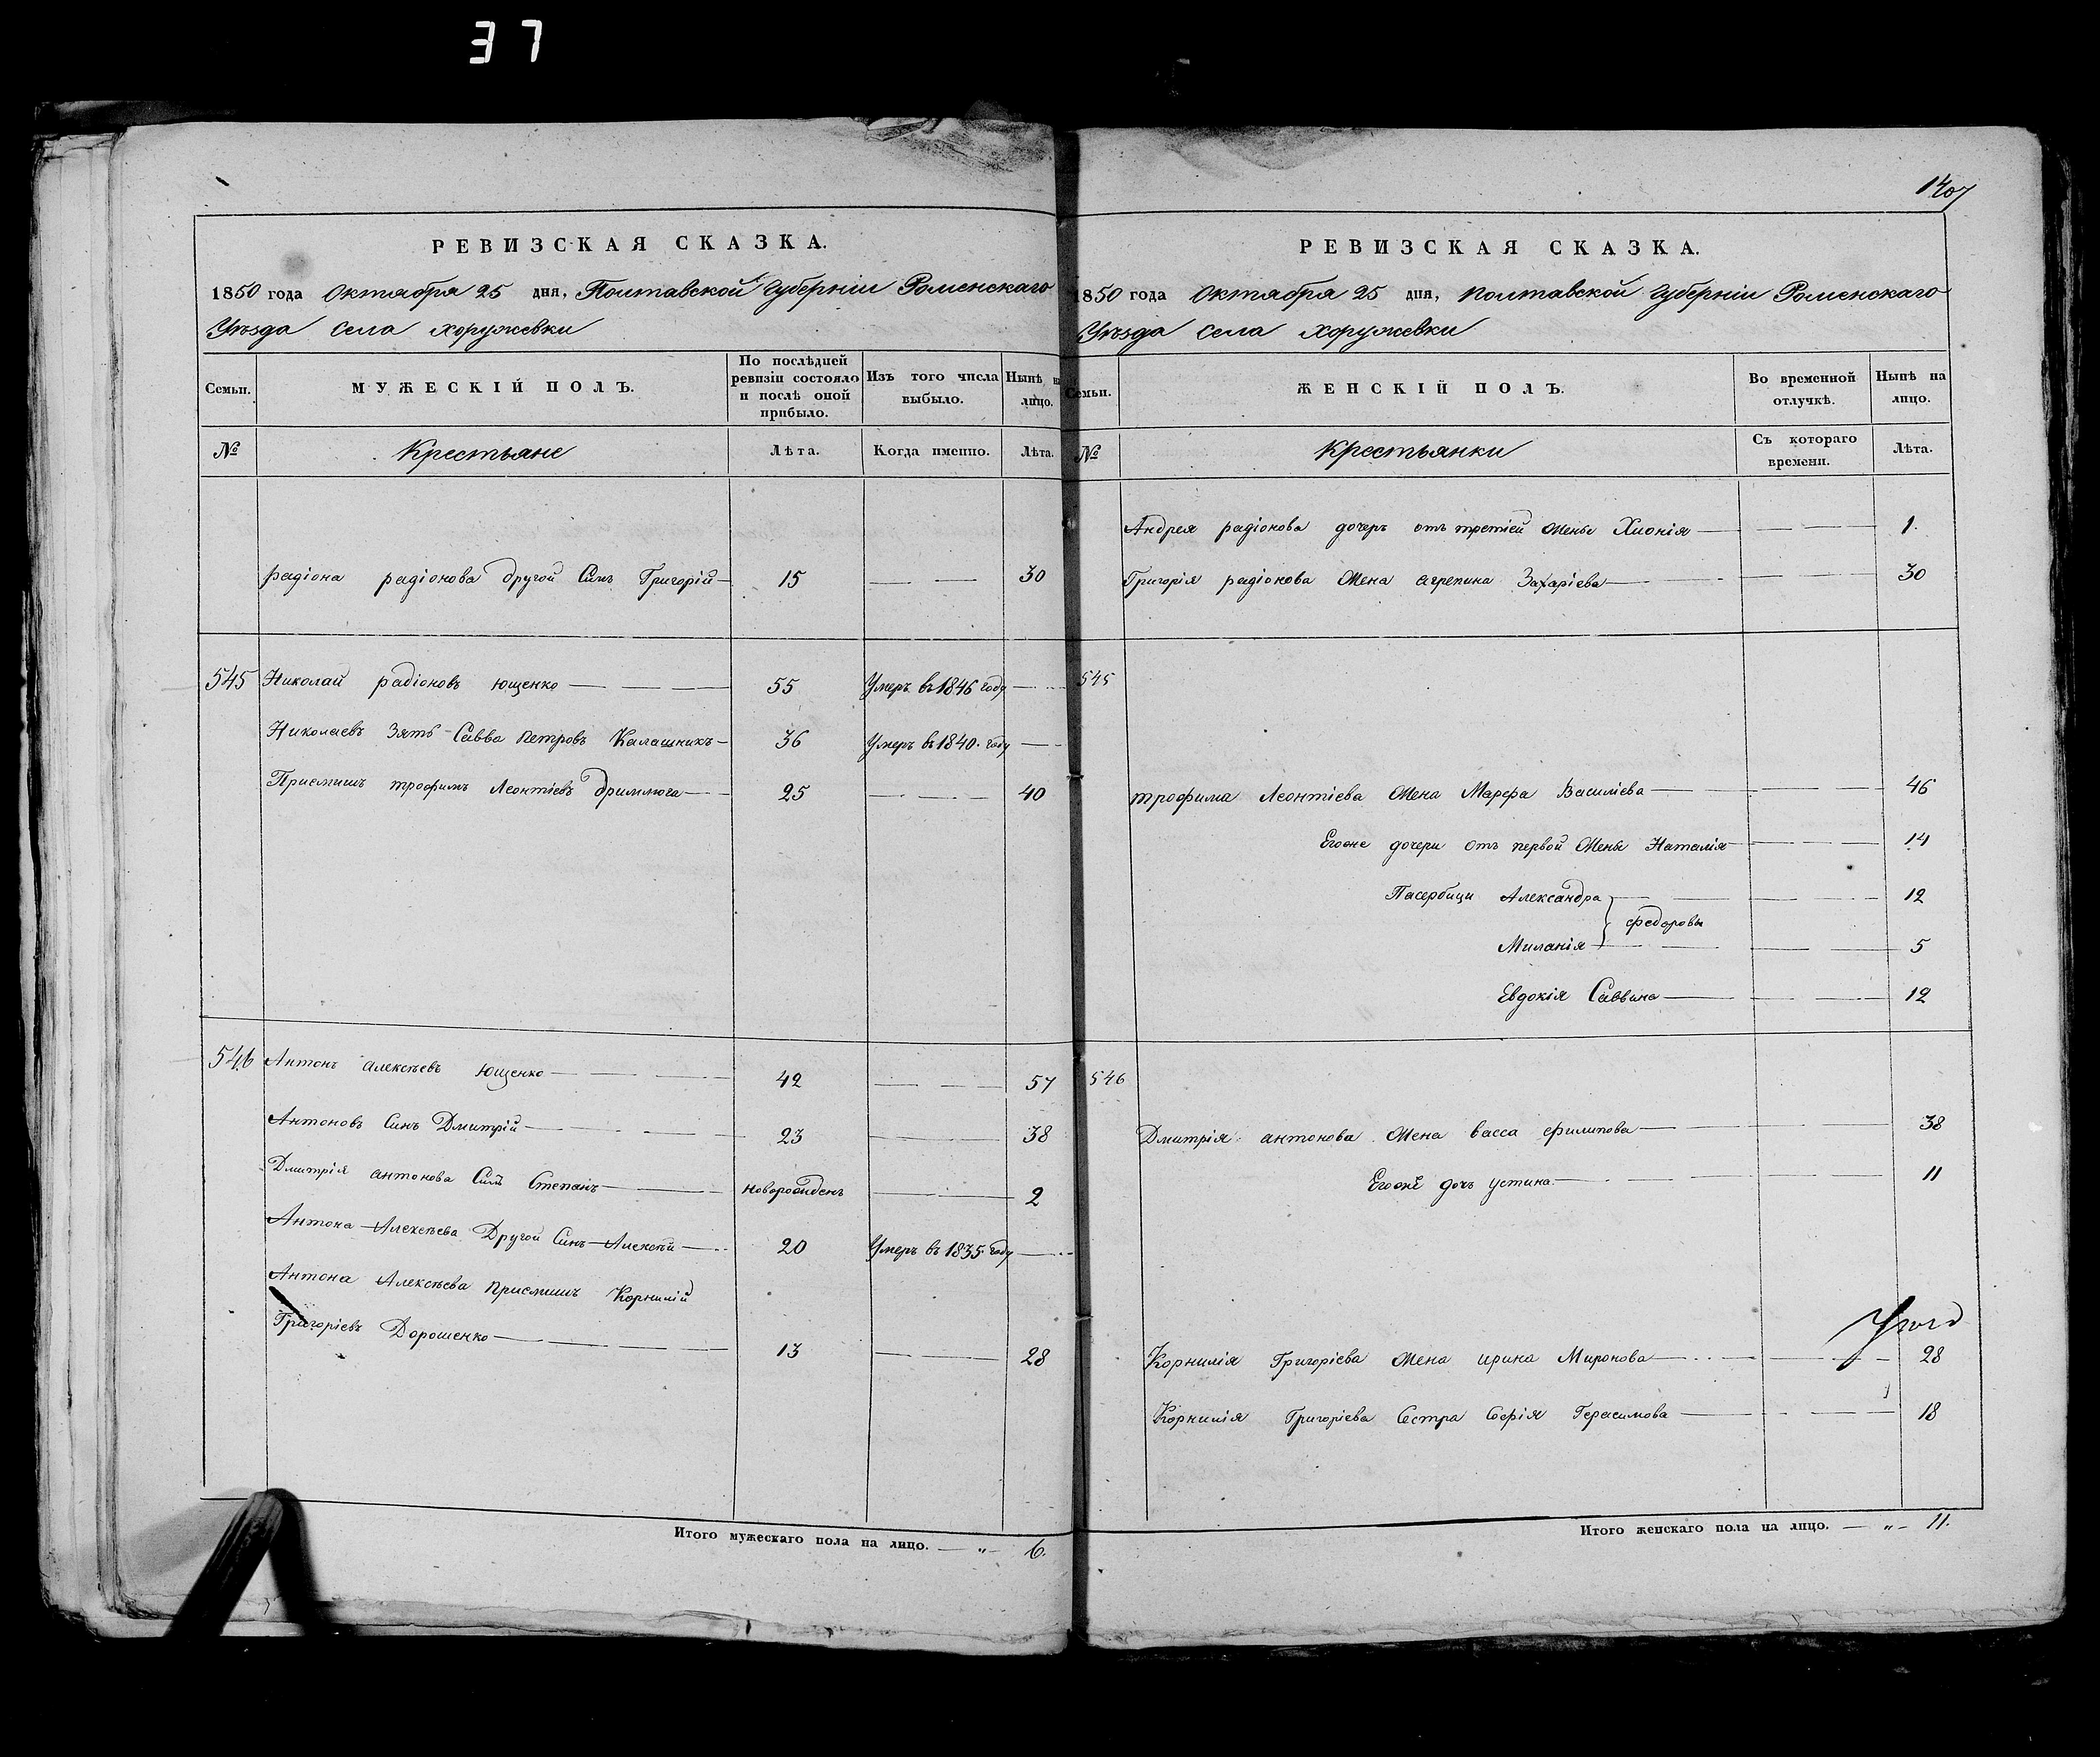 37
РЕВИЗСКАЯ СКАЗКА.
1850 года Октября 25 дня, Полтавской Губерніи Роменскаго
Уѣзда Села хоружевки
Семьи. МУЖЕСКІЙ ПОЛЪ. По послѣдней ревизіи состояло и послѣ оной прибыло. Изъ того числа выбыло. Нынѣ на лицо.
№ Крестьяне Лѣта. Когда именно. Лѣта.
радіона радіонова другой Синъ Григорій 15 — — 30
545 Николай радіоновъ Ющенко — — — 55 Умеръ въ 1846 году —
Николаевъ Зять Савва петровъ Калашникъ — 36 Умеръ въ 1840. году —
Приемишъ трофимъ Леонтіевъ дримлюга — 25 — — 40
546 Антонъ алексѣевъ Ющенко — — 42 — — 57
Антоновъ Синъ Дмитрій — — 23 — — 38
Дмитрія антонова Синъ Степанъ — новорожденъ — 2
Антона Алексѣева Другой Синъ Алексѣй — 20 Умеръ въ 1835 году —
Антона Алексѣева приемишъ Корнилій
Григоріевъ Дорошенко — — 13 — — 28
Итого мужескаго пола на лицо. — „ — 6.
1407
РЕВИЗСКАЯ СКАЗКА.
1850 года Октября 25 дня, полтавской Губерніи Роменскаго
Уѣзда Села хоружевки
Семьи. ЖЕНСКІЙ ПОЛЪ. Во временной отлучкѣ. Нынѣ на лицо.
№ Крестьянки Съ котораго времени. Лѣта.
Андрея радіонова дочерь отъ третіей жены Хионія — — 1.
Григорія радіонова жена агрепина Захаріева — — 30
545
трофима Леонтіева жена Марфа Василіева — — 46
Егоже дочери отъ первой жены Наталія — — 14
Пасербици Александра — — 12
федоровы
Миланія — — 5
Евдокія Саввина — — 12
546
Дмитрія антонова жена васса филипова — — 38
Егоже дочь устина — — 11
Корнилія Григоріева жена ирина Миронова — — 28
Корнилія Григоріева Сестра Софія Герасимова — — 18
Итого женскаго пола на лицо. — „ — 11.